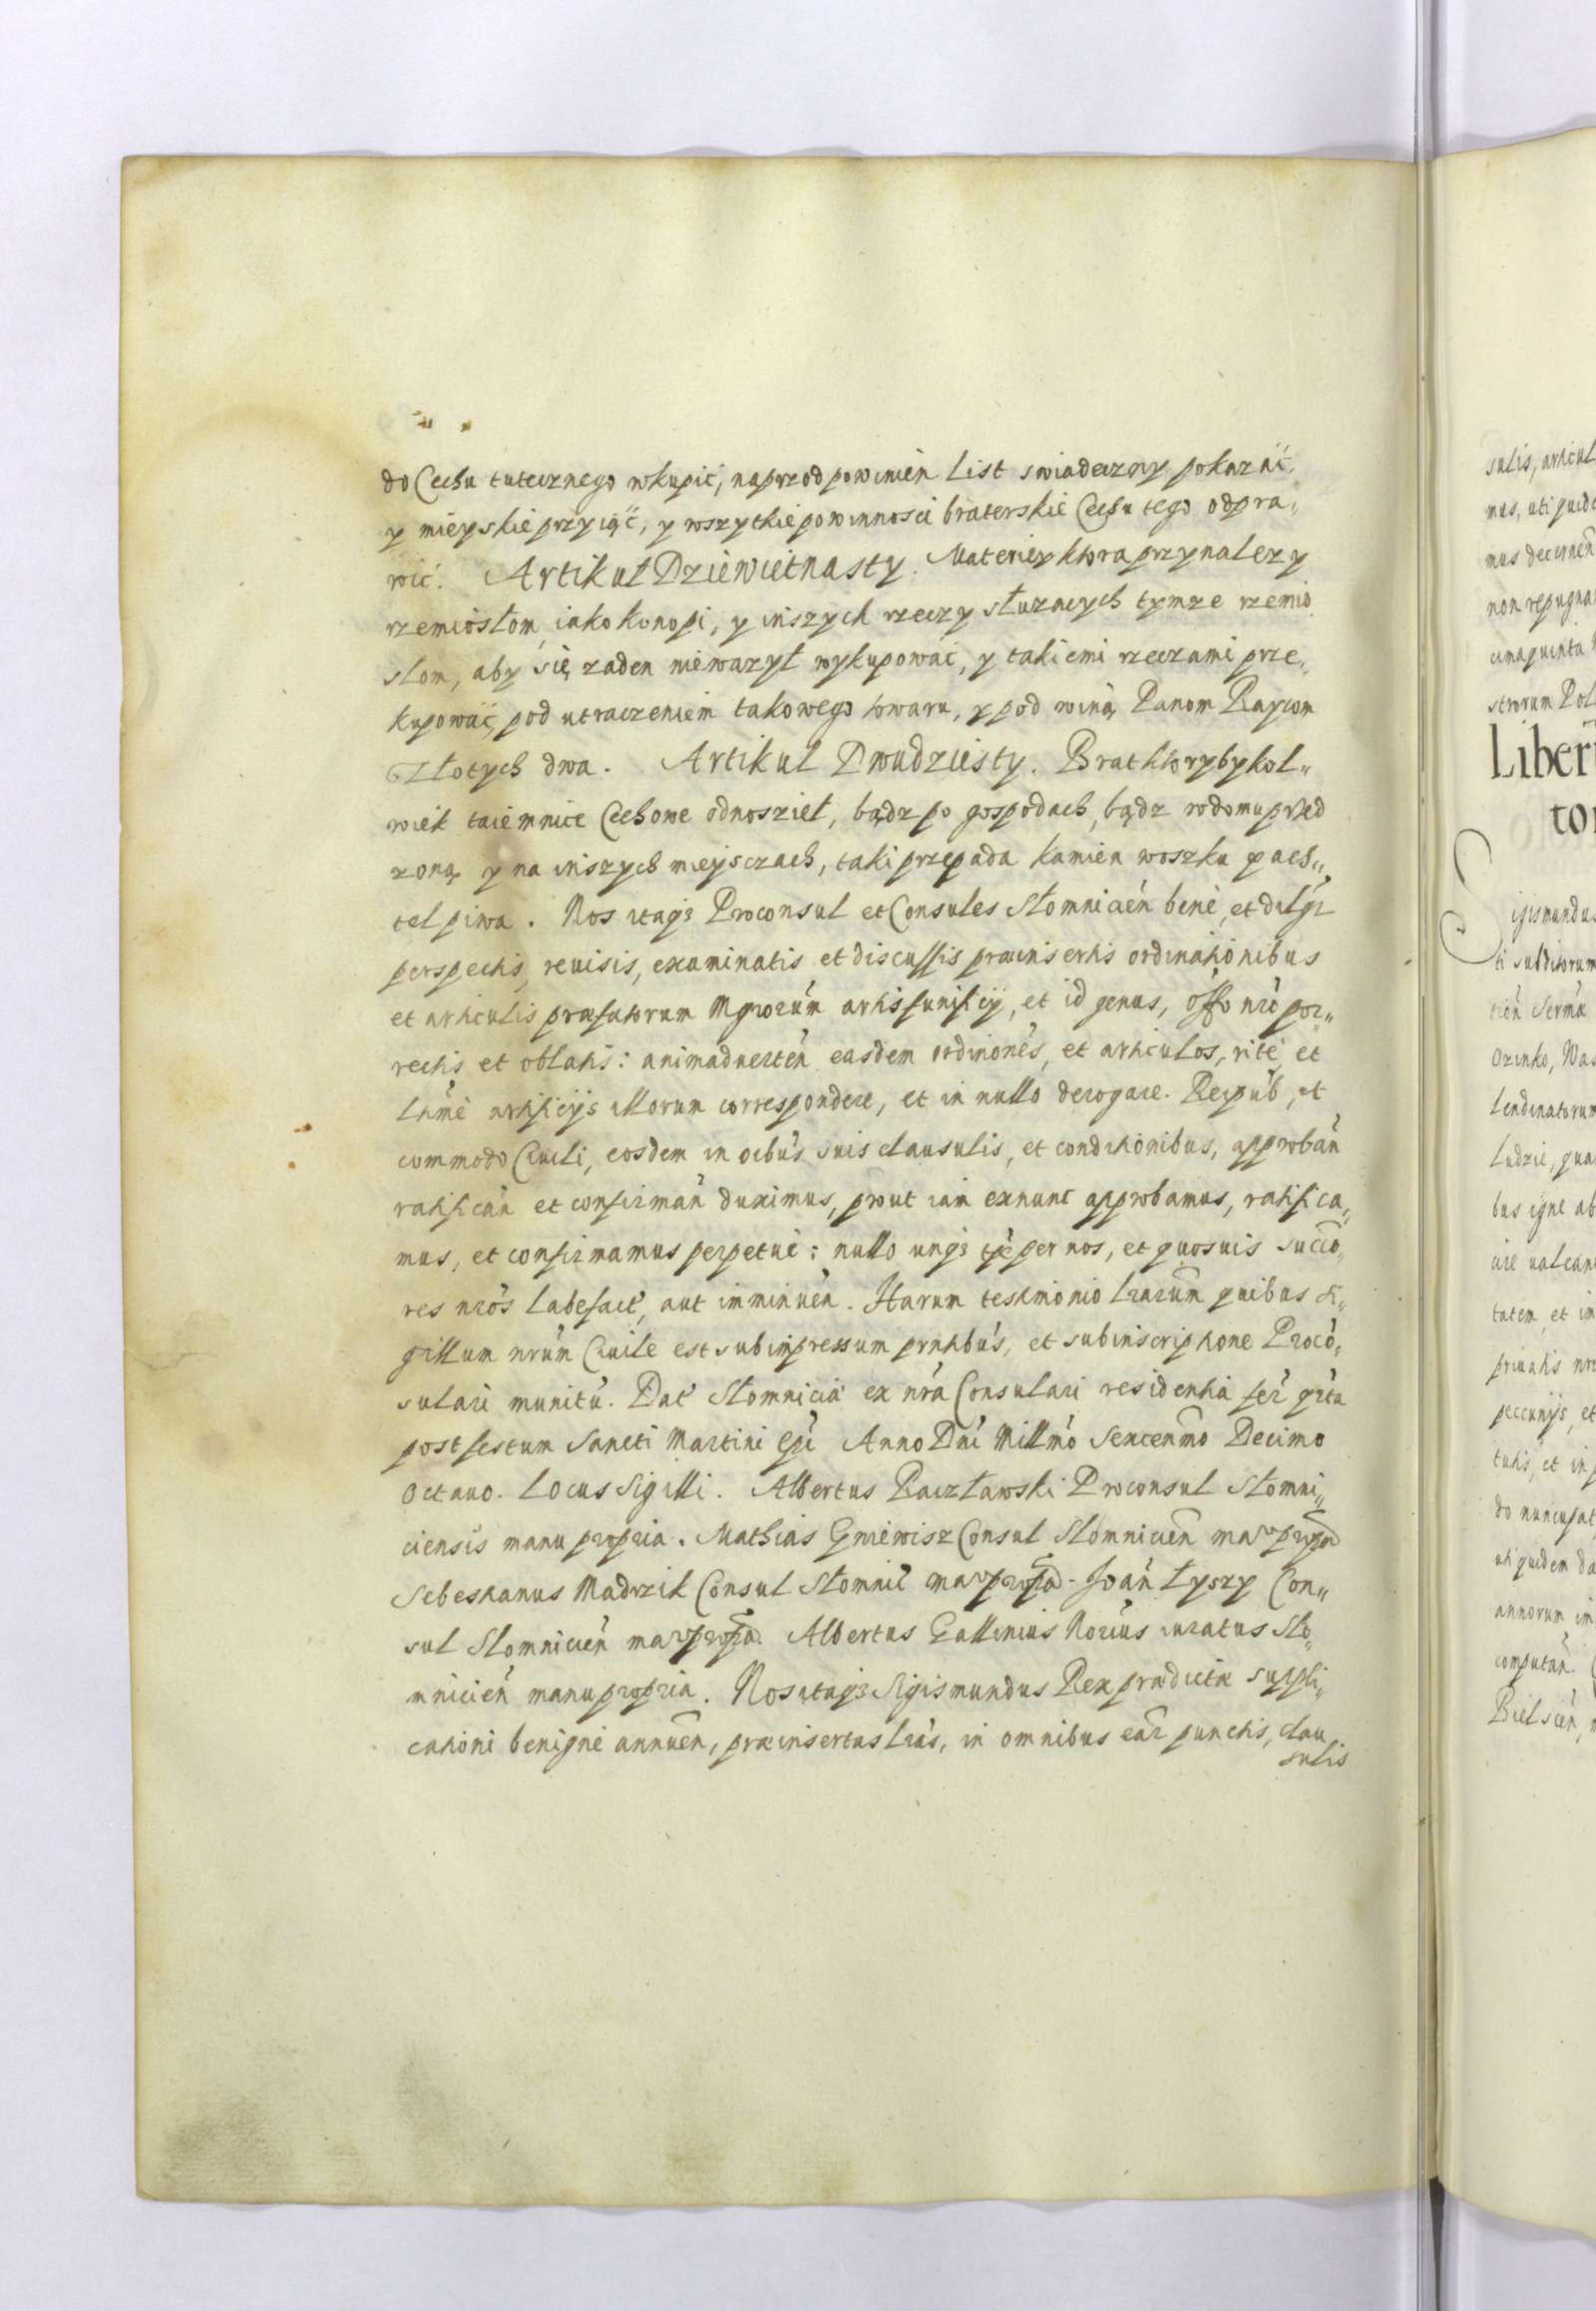 do Cechu tutecznego wkupić, naprzod powinien List swiadeczny pokazać,
y mieyskie przyiąć, y wszytkie powinnosci braterskie Cechu tego odpra„
wić. Artikuł Dziewietnasty. Materiey ktora przynalezy
rzemiosłom iako konopi, y inszych rzeczy słuzacych tymze rzemio
slom, aby się zaden niewazył wykupować, y takiemi rzeczami prze„
kupować, pod utraczeniem takowego towaru, y pod winą Panom Raycom
Złotych dwa. Artikul Dwudziesty. Brat ktorybykol„
wiek taiemnice Cechowe odnosziel, bądz po gospodach, bądz wdomu przed
zoną y na inszych mieysczach, taki przepada kamien woszku y ach„
tel piwa. Nos itaqз Proconsul et Consules Słomnicień benè, et dilgr
perspectis, reuisis, examinatis et discussis præinsertis ordinationibus
et articulis præfatorum Mgrorum artis funificij, et id genus, offo nro por„
rectis et oblatis: animaduerten easdem ordinones, et articulos, rite, et
lttme artificijs illorum correspondere, et in nullo derogare. Reipub, et
commodo Ciuili, eosdem in oibus suis clausulis, et conditionibus, approban
ratifican et confirman duximus, prout iam exnunc approbamus, ratifica„
mus, et confirmamus perpetue: nullo unqз tpe per nos, et quosuis succo„
res nros labefact, aut imminuen. Harum testimonio lrarum quibus si„
gillum nrum Ciuile est subimpressum prntibus, et subinscriptione Proco„
sulari munitu. Dat Słomnicia ex nra Consulari residentia fer qrta
post festum Sancti Martini Epi Anno Dni Millmo Sexcenmo Decimo
octauo. Locus Sigilli. Albertus Raczławski Proconsul Słomni„
ciensis manu propria. Mathias Gniewisz Consul Slomnicien manu propria
Sebestianus Madrzik Consul Słomnic manu propria - Joan Łyszy Con„
sul Slomnicien manu propria. Albertus Gallinius Norius iuratus Slo„
mnicien manu propria. Nos itaqз Sigismundus Rex prædictæ suppli„
cationi benigne annuen, præinsertas lras, in omnibus ear punctis, clau
sulis
sulis, articul
mus, uti quide
mus decernen
non repugna
cinquinta
strorum Pol
Liber
to
Sigismundus
ti subditorum
Serma
Lendinatorum
Ludzie, qua
bus igne ab
cie ualean
tatem, et im
priuatis nr
peccunijs, et
tuhis, et in
do nuncupat
uti quidem da
annorum im
computan.
Bielscen,